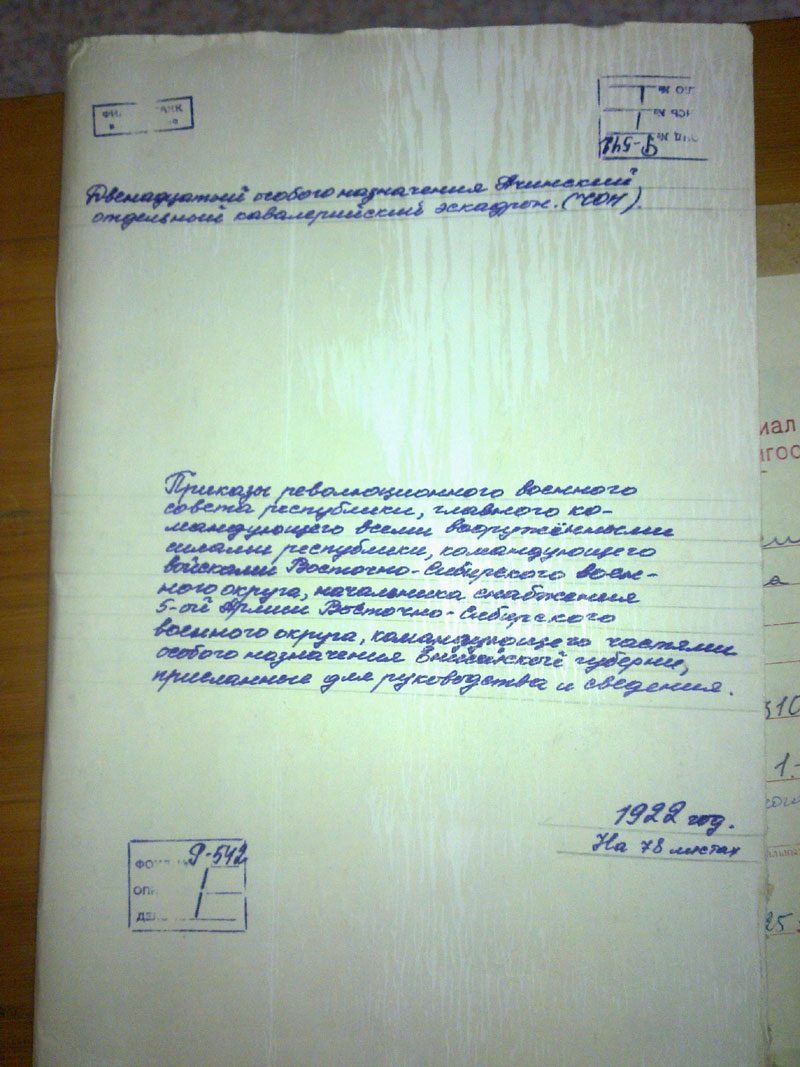 Двенадцатый особого назначения Ачинский
отдельный кавалерийский эскадрон. (ЧОН).
Приказы революционного военного
совета республики, главного ко-
мандующего всеми вооружёнными
силами республики, командующего
войсками Восточно-Сибирского воен-
ного округа, начальника снабжения
5-ой Армии Восточно-Сибирского
военного округа, командующего частями
особого назначения Енисейской губерни,
присланные для руководства и сведения.
1922 год.
На 78 листах
Р-542
1
1
Р-542
1
1
310
1.-
25